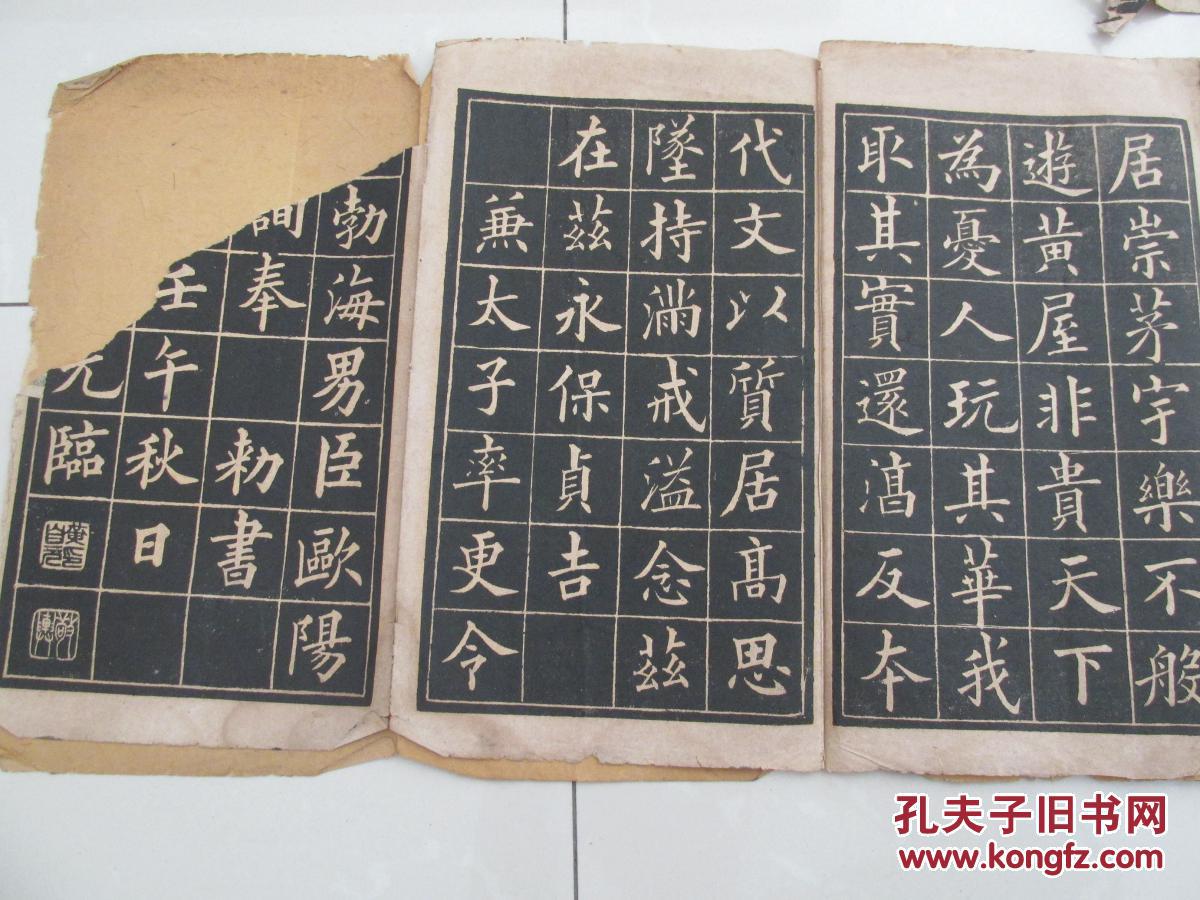 居崇茅宇樂不般
遊黃屋非貴天下
為憂人玩其華我
取其實還淳反本
代文以質居高思
墜持滿戒溢念茲
在茲永保貞吉
兼太子率更令
勃海男臣歐陽
詢奉 勑書
壬午秋日
元臨
黃自元印
敬輿
孔夫子旧书网
www.kongfz.com